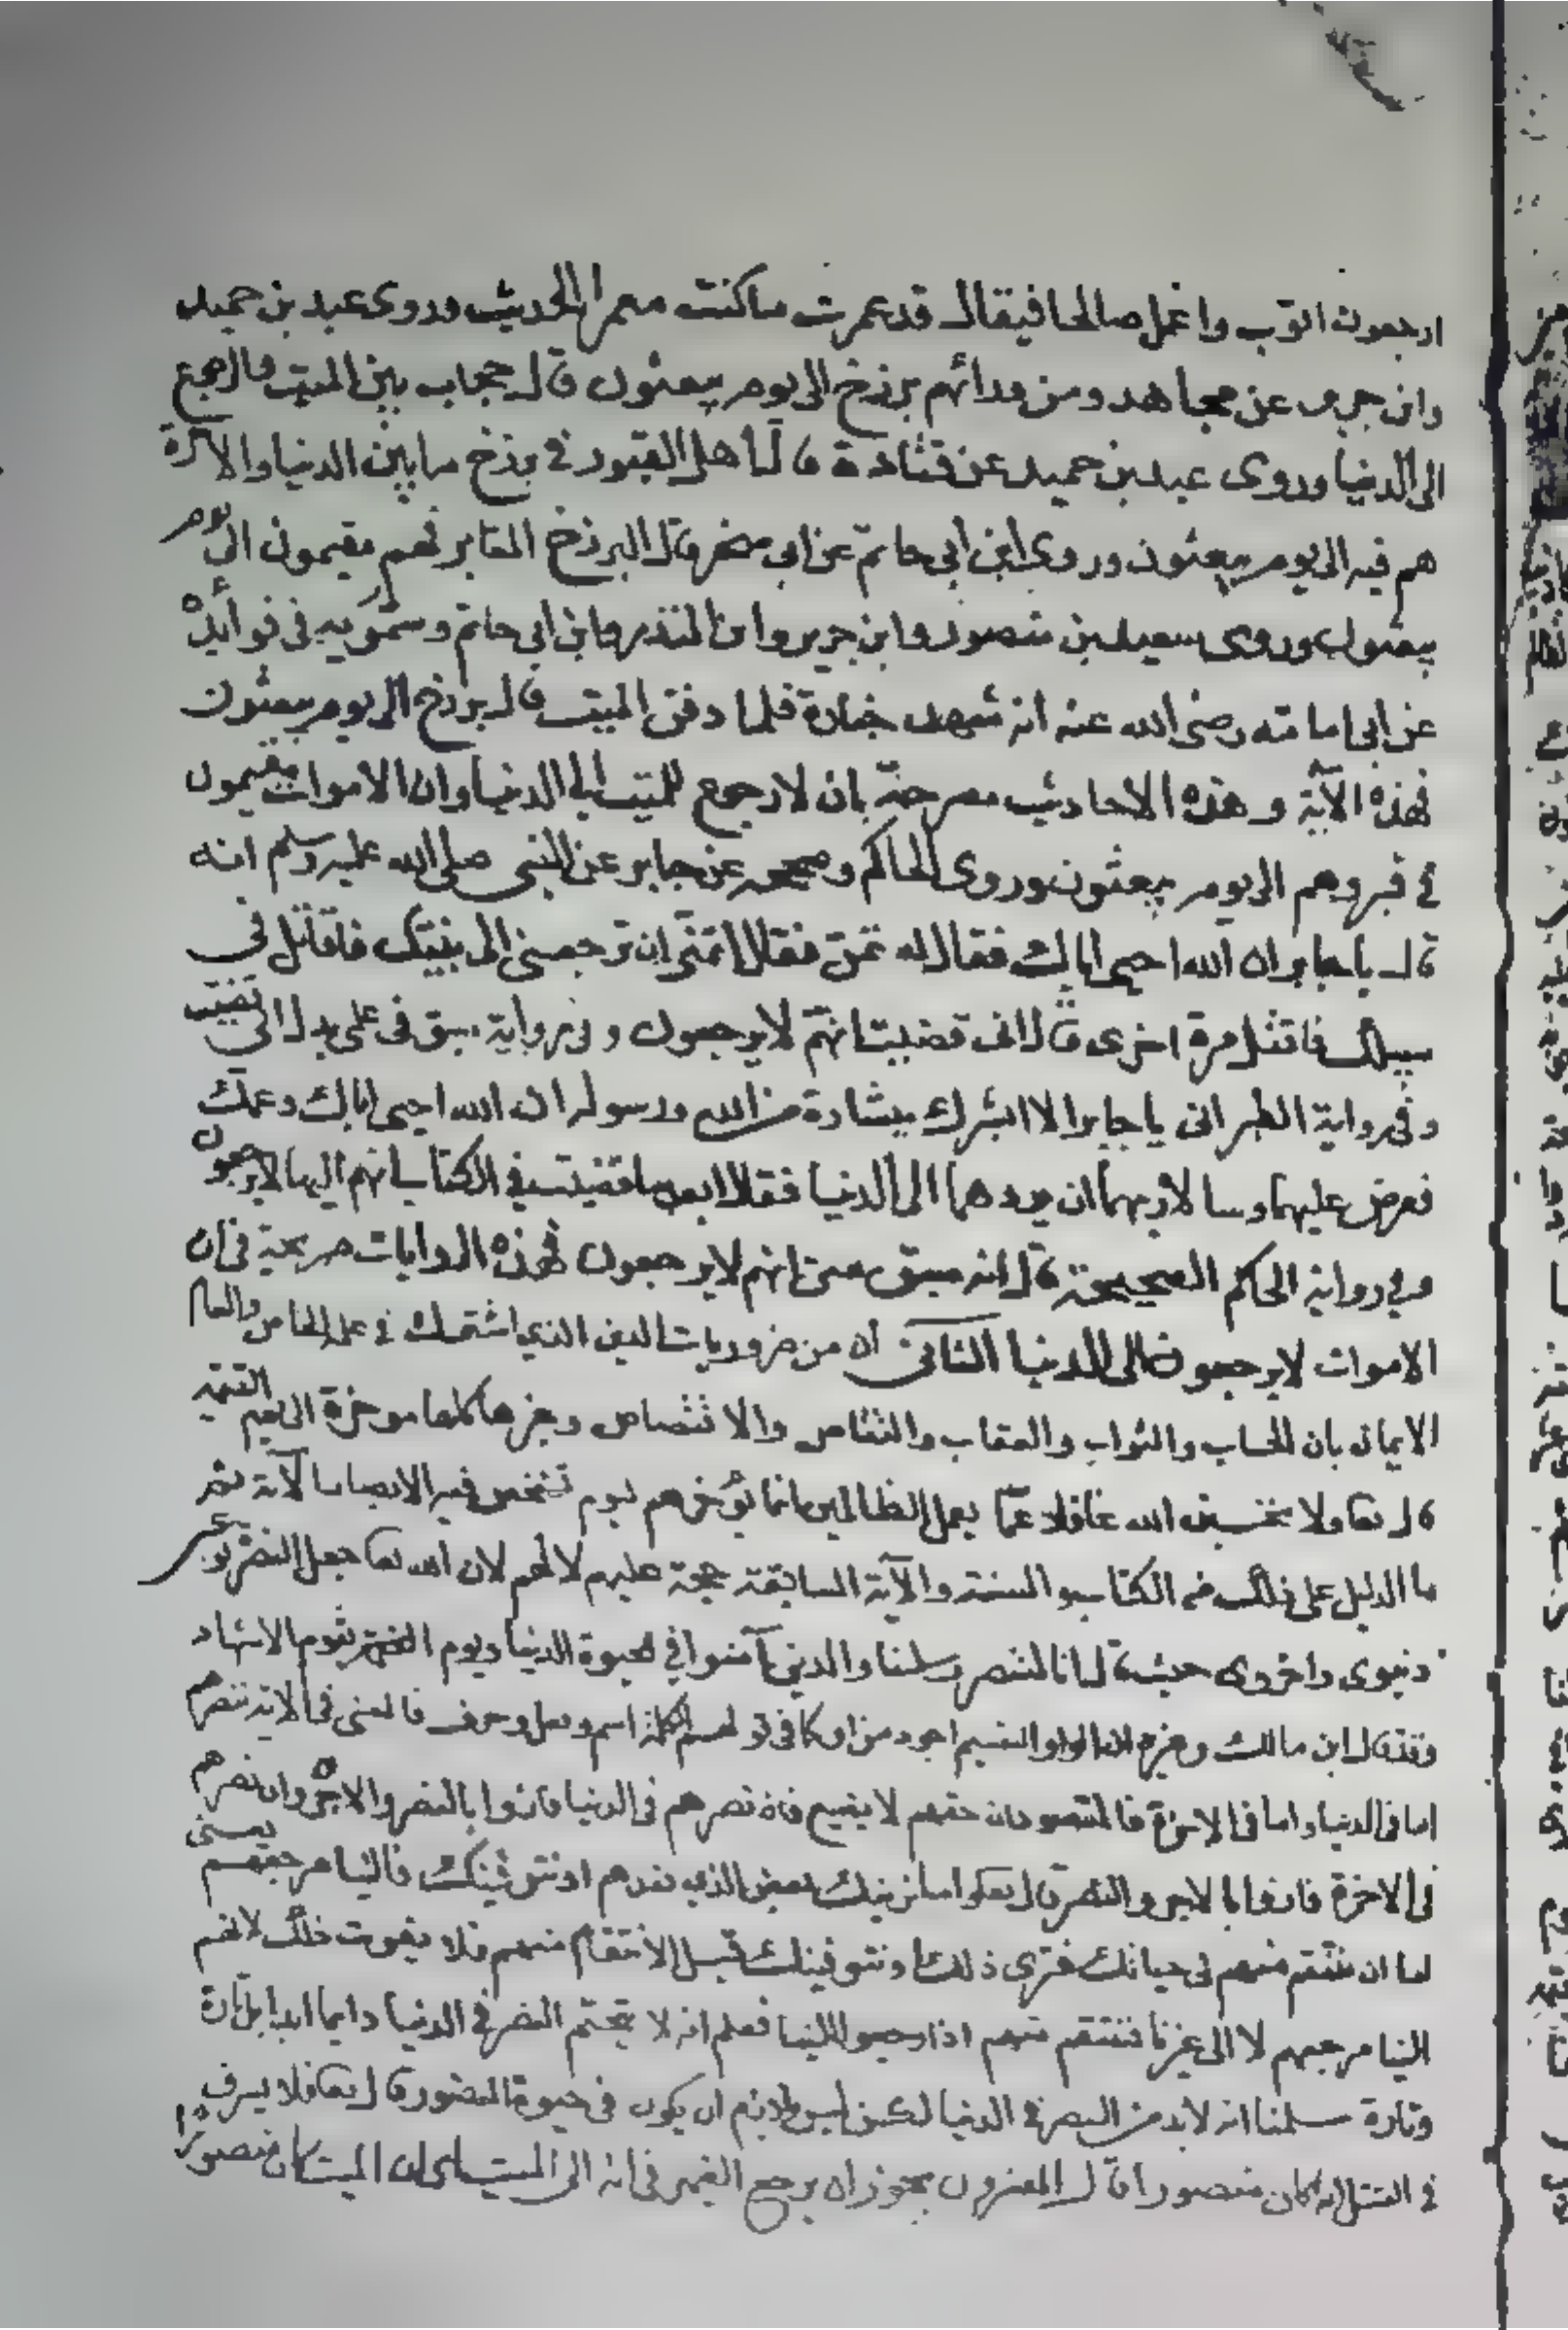 ارجعون اتوب واعمل صالحا فيقال قد عمرت ما كنت معمرا الحديث وروى عبد بن حميد
وابن جرير عن مجاهد ومن ورائهم برزخ الى يوم يبعثون قال حجاب بين الميت والرجع
الى الدنيا وروى عبد بن حميد عن قتادة قال اهل القبور في برزخ ما بين الدنيا والاخرة
هم فيه الى يوم يبعثون وروى ابن ابي حاتم عن ابي صخر قال البرزخ المقابر فهم مقيمون الى يوم
يبعثون وروى سعيد بن منصور وابن جرير وابن المنذر وابن ابي حاتم وسمويه في فوائده
عن ابي امامته رضى الله عنه انه شهد جنازة فلما دفن الميت قال برزخ الى يوم يبعثون
فهذه الآية وهذه الاحاديث مصرحة بان لا رجوع للميت الى الدنيا وان الاموات مقيمون
في قبروهم الى يوم يبعثون وروى الحاكم وصححه عن جابر عن النبي صلى الله عليه وسلم انه
قال يا جابر ان الله احيى اباك فقال له تمن فقال اتمنى ان ترجعنى الى بنيتك فاقاتل في
سبيلك فاقتل مرة اخرى قال انى قضيت انهم لا يرجعون وفي رواية سبق في على بدل انى قضيت
وفي رواية الطبرانى يا جابر الا ابشرك ببشارة من الله ورسوله ان الله احيى اباك وعمك
فعرض عليهما وسالا ربهما ان يردهما الى الدنيا فقال انى قضيت في الكتاب انهم اليها لا يرجعون
وفي رواية الحاكم الصحيحة قال انه سبق منى انهم لا يرجعون فهذه الروايات صريحة في ان
الاموات لا يرجعون الى الدنيا الثانى ان من ضروريات الدين الذي اشترك في علمه الخاص والعام
الايمان بان الحساب والثواب والعقاب والقصاص والاقتصاص وغيرها كلها موخرة الى يوم القيمه
قال تعا ولا تحسبن الله غافلا عما يعمل الظالمون انما يؤخرهم ليوم تشخص فيه الابصار الآية ثم
ما الدليل على ذلك من الكتاب والسنة والآية السابقة حجة عليهم لا لهم لان الله تعا جعل النصر نوعين
دنيوى واخروى حيث قال انا لننصر رسلنا والذين آمنوا في الحيوة الدنيا ويوم القيمة يقوم الاشهاد
وقد قال ابن مالك وغيره ان الواو للتقسيم اجود من او كما في قولهم الكلمة اسم وفعل وحرف فالمعنى في الآية ننصرهم
اما في الدنيا واما في الاخرة فالمقصود ان حقهم لا يضيع فان نصرهم في الدنيا فازوا بالنصر والاجر وان نصرهم
في الاخرة فازوا بالاجر والنصر قال تعا واما نرينك بعض الذي نعدهم او نتوفينك فالينا مرجعهم يعنى
اما ان ننتقم منهم في حياتك فترى ذلك او نتوفينك قبل الانتقام منهم فلا يفوت ذلك لانهم
الينا مرجعهم لا الى غيرنا فننتقم منهم اذا رجعوا الينا فعلم انه لا يتحتم النصر في الدنيا دايما ابدا بل تارة
وتارة سلمنا انه لابد من النصر في الدنيا لكن ليس بلازم ان يكون في حيوة المنصور قال تعا فلا يسرف
في القتل انه كان منصورا قال المفسرون يجوز ان يرجع الضمير في انه الى الميت اى ان الميت كان منصورا